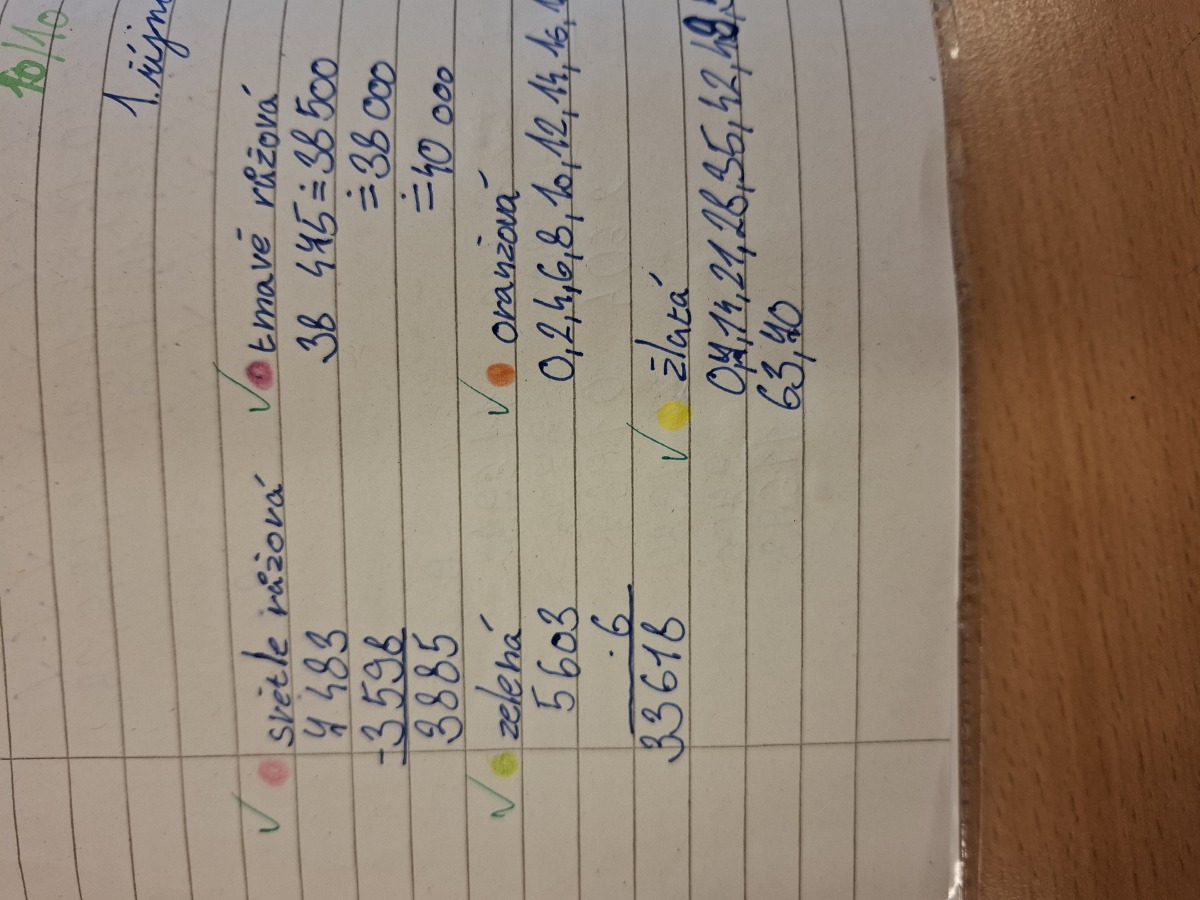 10/10
1. říjn
světle růžová
7 483
-3 598
3885
tmavě růžová
38 475 ≐ 38 500
≐ 38 000
≐ 40 000
zelená
5 603
· 6
33618
oranžová
0,2,4,6,8,10,12,14,16,1
žlutá
0,7,14,21,28,35,42,49,5
63,70